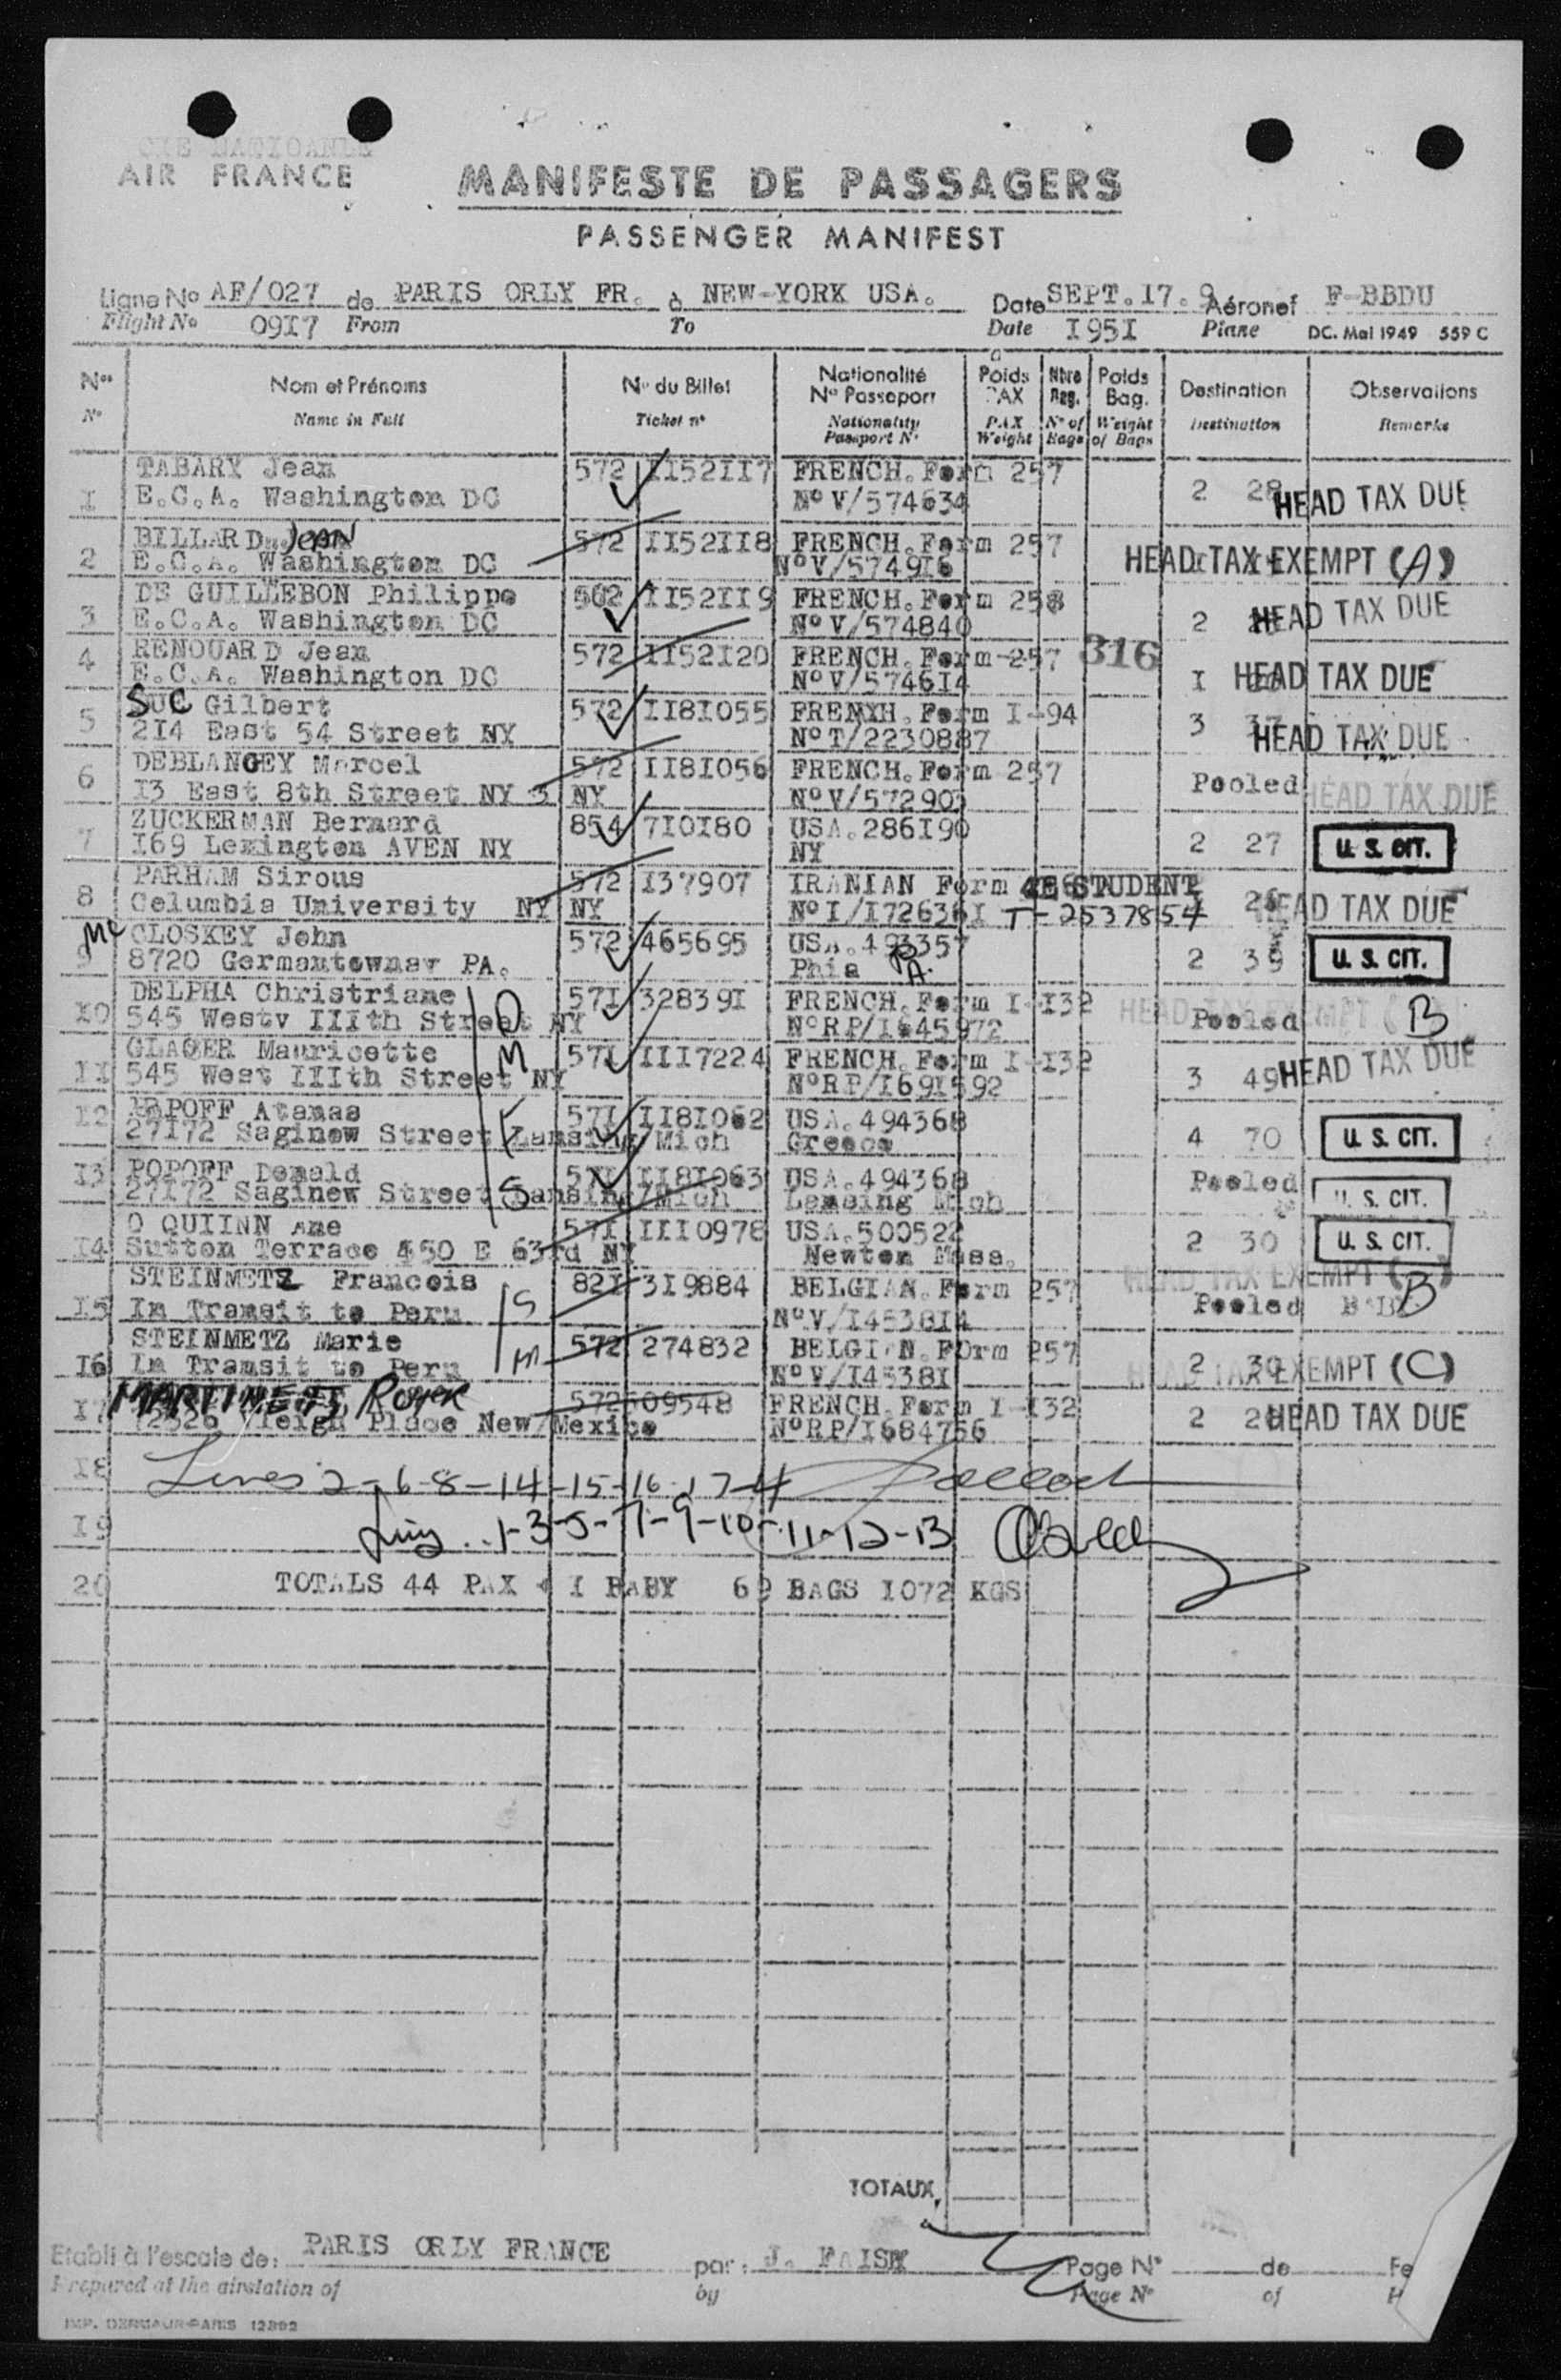 CIE NATIOANLE
AIR FRANCE
MANIFESTE DE PASSAGERS
PASSENGER MANIFEST
Ligne No AF/027 de PARIS ORLY FR. à NEW-YORK USA. Date SEPT.17.9 Aéronef F-BBDU
Flight No 09I7 From To Date I95I Plane DC. Mai 1949 559 C
Nos Nom et Prénoms No du Billet Nationalité No Passeport Poids PAX Nbre Bag. Poids Bag. Destination Observations
No Name in Full Ticket no Nationality Passport No PAX Weight No of Bags Weight of Bags Destination Remarks
TABARY Jean 572 II52II7 FRENCH. Form 257
I E.C.A. Washington DC No V/574634 2 28 HEAD TAX DUE
BILLARD Jean 572 II52II8 FRENCH. Form 257
2 E.C.A. Washington DC No V/574916 HEAD TAX EXEMPT (A)
DE GUILLEBON Philippe II52II9 FRENCH. Form 258
3 E.C.A. Washington DC No V/574840 2 HEAD TAX DUE
4 RENOUARD Jean 572 II52I20 FRENCH. Form-257 316
E.C.A. Washington DC No V/5746I4 I HEAD TAX DUE
SUC Gilbert 572 II8I055 FRENXH. Form I-94
5 2I4 East 54 Street NY No T/2230887 3 37 HEAD TAX DUE
DEBLANGEY Marcel 572 II8I056 FRENCH. Form 257
6 I3 East 8th Street NY 3 NY No V/572903 Pooled HEAD TAX DUE
ZUCKERMAN Bernard 854 7I0I80 USA.286I90
7 I69 Lexington AVEN NY NY 2 27 U. S. CIT.
PARHAM Sirous 572 I37907 IRANIAN Form 4E STUDENT
8 Columbia University NY NY No I/I72636I T-2537854 26 HEAD TAX DUE
Mc CLOSKEY John 572 465695 USA.493357
9 8720 Germantownav PA. Phia PA. 2 39 U. S. CIT.
DELPHA Christriane 57I 32839I FRENCH. Form I-I32
I0 545 Westv IIIth Street NY D No RP/I645972 Pooled HEAD TAX EXEMPT B
GLAOER Mauricette 57I III7224 FRENCH. Form I-I32
II 545 West IIIth Street NY M No RP/I69I592 3 49 HEAD TAX DUE
I2 POPOFF Atanas 57I II8I062 USA.494368
27I72 Saginow Street Lansing/Mich F Greece 4 70 U. S. CIT.
I3 POPOFF Donald 57I II8I063 USA.494368
27I72 Saginew Street Lansing/Mich S Lansing Mich Pooled U. S. CIT.
O QUIINN Ane 57I III0978 USA.500522
I4 Sutton Terrace 450 E 63rd NY Newton Mass. 2 30 U. S. CIT.
STEINMETZ Francois 82I 3I9884 BELGIAN. Form 257 HEAD TAX EXEMPT
I5 In Transit to Peru S No V/I4538I4 Pooled B
STEINMETZ Marie 572 274832 BELGIAN. FOrm 257
I6 In Transit to Peru M No V/I4538I 2 30 HEAD TAX EXEMPT (C)
MARTINETS 572 609548 FRENCH. Form I-I32
I7 Place New/Mexico No RP/I684756 2 HEAD TAX DUE
I8 Lines 2-6-8-14-15-16-17-4
I9 1-3-5-7-9-10-11-12-13
20 TOTALS 44 PAX + I BABY 69 BAGS I072 KGS
TOTAUX
Etabli à l'escale de: PARIS ORLY FRANCE par: J. Page No de
Prepared at the airstation of by Page No of
IMP. DERMAUR-PARIS 12892